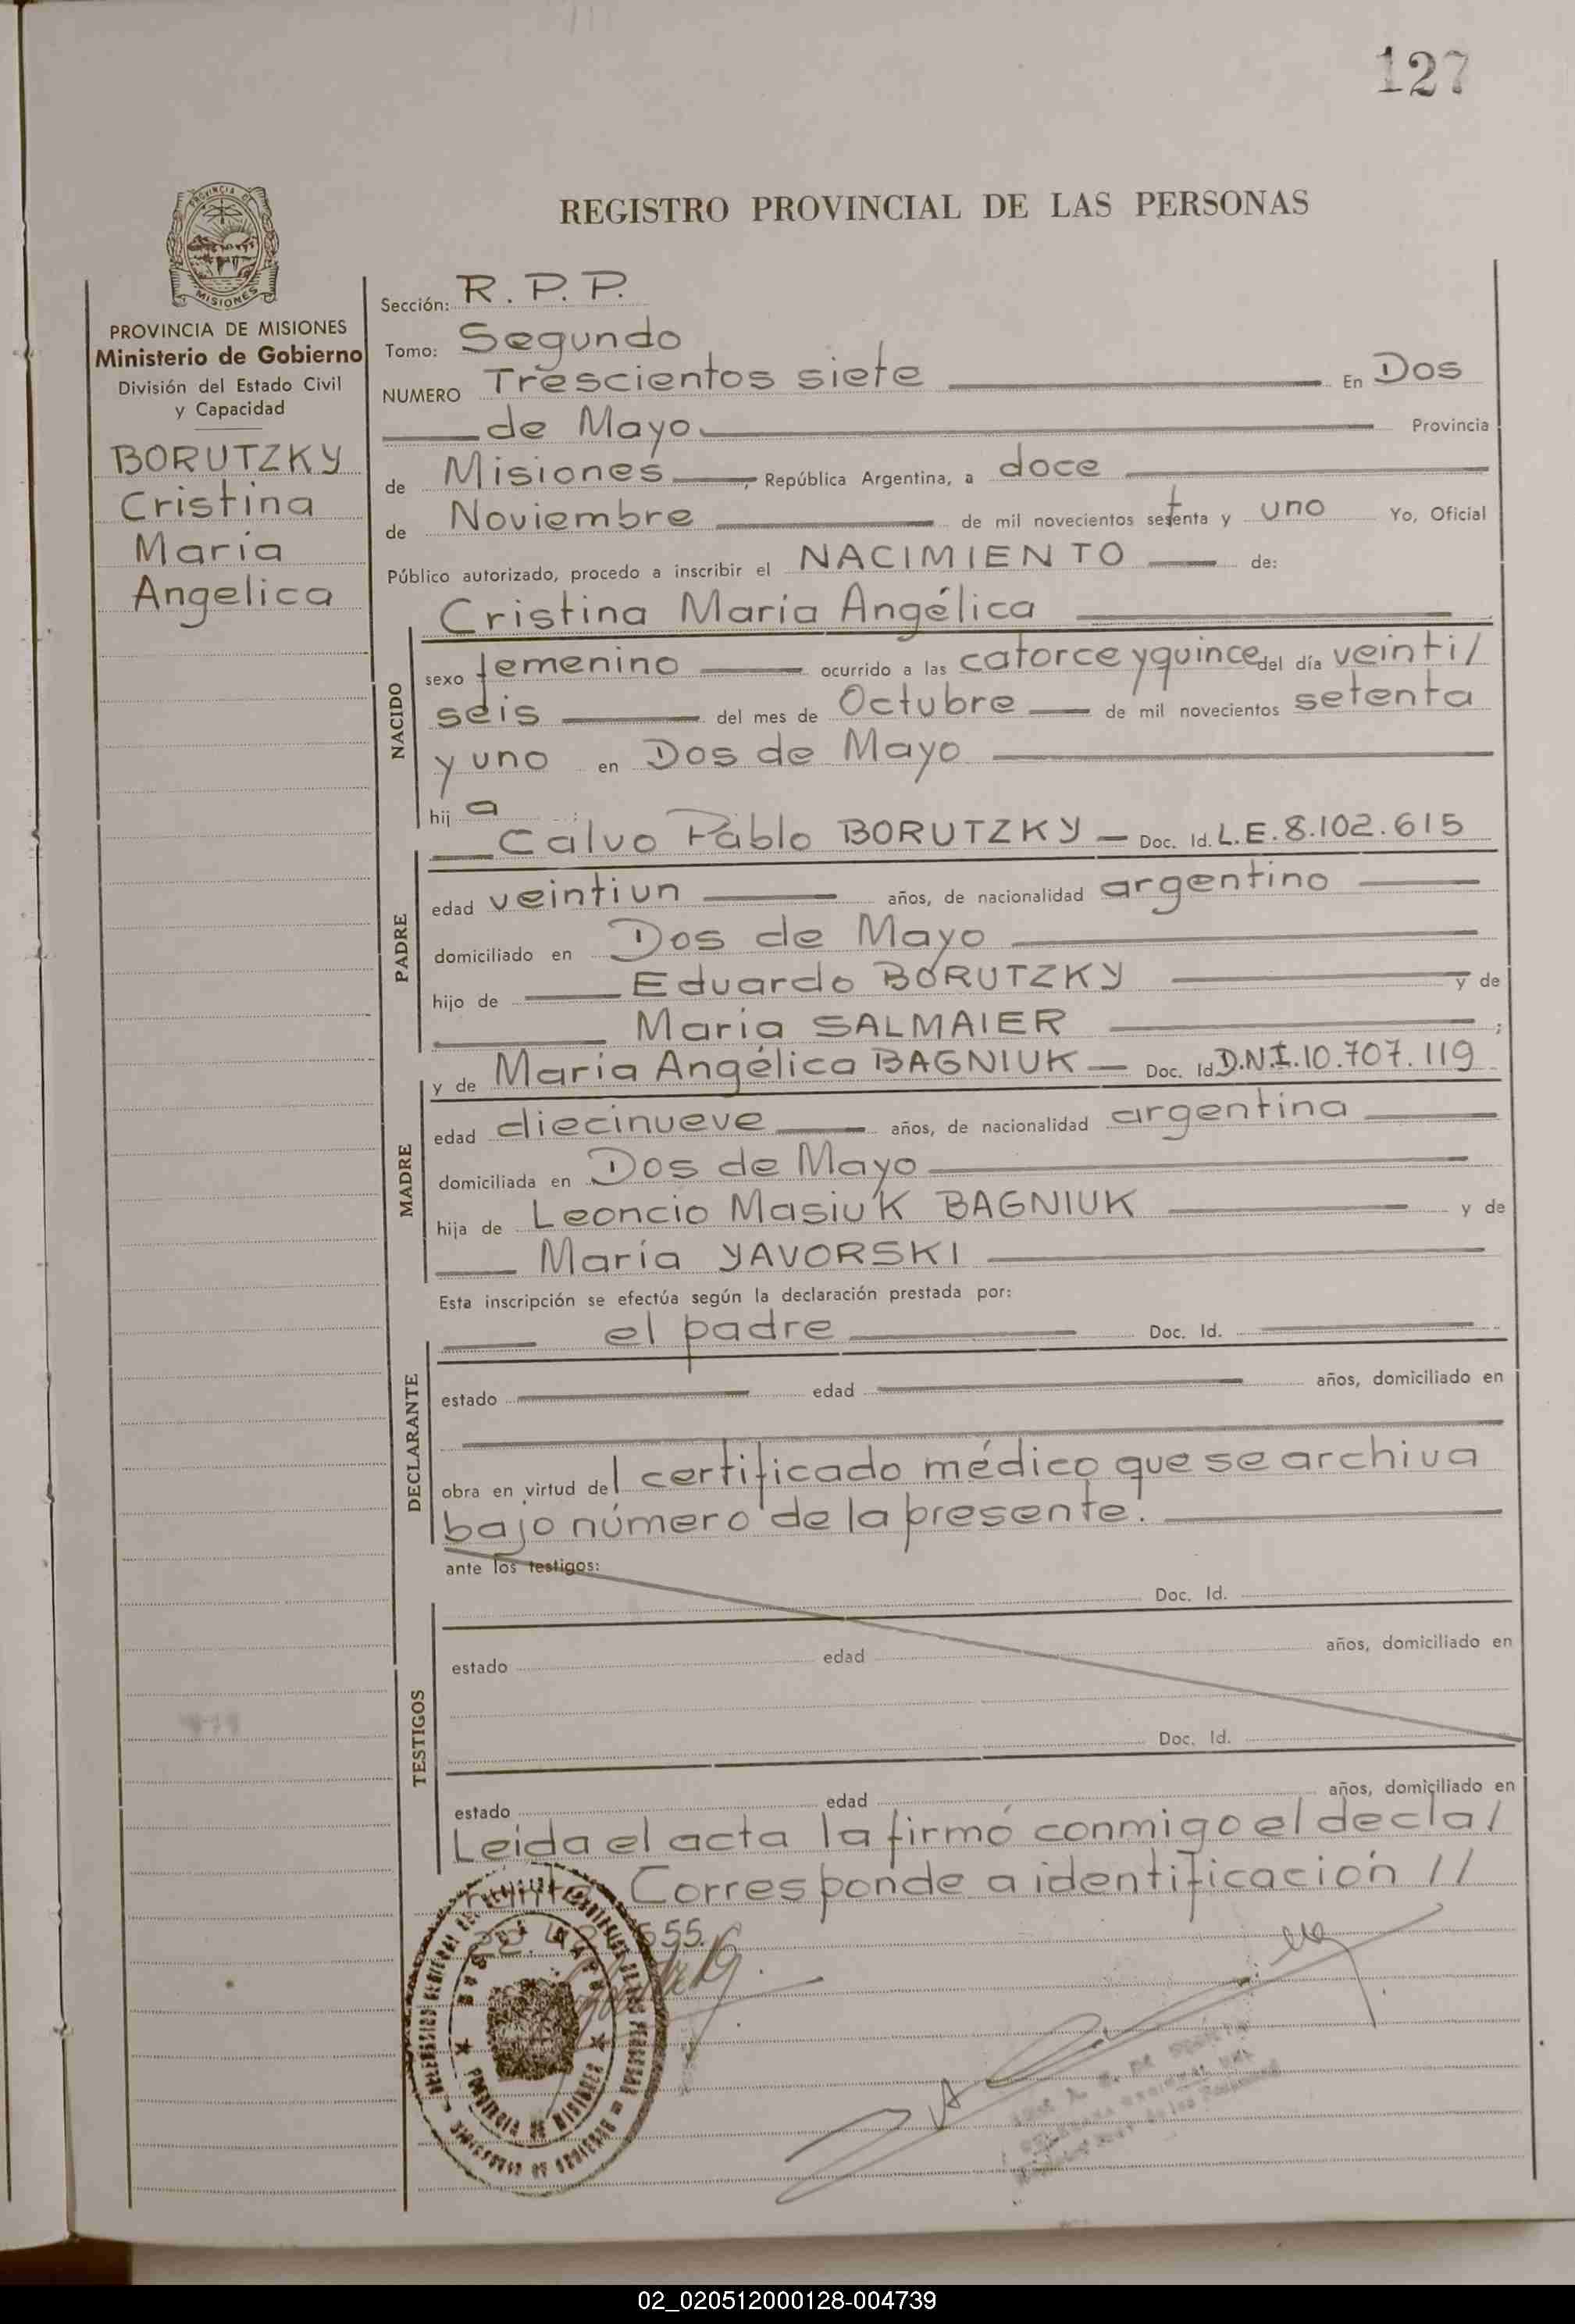 127
REGISTRO PROVINCIAL DE LAS PERSONAS
MISIONES
PROVINCIA DE MISIONES
Ministerio de Gobierno
División del Estado Civil
y Capacidad
BORUTZKY
Cristina
María
Angelica
Sección: R. P. P.
Tomo: Segundo
NUMERO Trescientos siete En Dos
de Mayo Provincia
de Misiones, República Argentina, a doce
de Noviembre de mil novecientos setenta y uno Yo, Oficial
Público autorizado, procedo a inscribir el NACIMIENTO de:
Cristina María Angélica
NACIDO
sexo femenino ocurrido a las catorce y quince del día veinti/
seis del mes de Octubre de mil novecientos setenta
y uno en Dos de Mayo
hija
Calvo Pablo BORUTZKY Doc. Id. L.E. 8.102.615
PADRE
edad veintiun años, de nacionalidad argentino
domiciliado en Dos de Mayo
hijo de Eduardo BORUTZKY y de
María SALMAIER ;
y de María Angélica BAGNIUK Doc. Id. D.N.I. 10.707.119
MADRE
edad diecinueve años, de nacionalidad argentina
domiciliada en Dos de Mayo
hija de Leoncio Masiuk BAGNIUK y de
María YAVORSKI
Esta inscripción se efectúa según la declaración prestada por:
el padre Doc. Id.
DECLARANTE
estado edad años, domiciliado en
obra en virtud del certificado médico que se archiva
bajo número de la presente.
ante los testigos:
Doc. Id.
TESTIGOS
estado edad años, domiciliado en
Doc. Id.
estado edad años, domiciliado en
Leida el acta la firmó conmigo el decla/
Corresponde a identificación //
PROVINCIA DE MISIONES
02_020512000128-004739